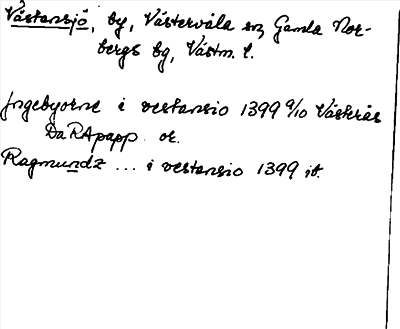 Västansjö, by, Västervåla sn, Gamla Nor-
bergs bg, Västm. l.
Jngebyorne i vestansio 1399 9/10 Västerås
Da RApapp or.
Ragmundz ... i vestansio 1399 it.